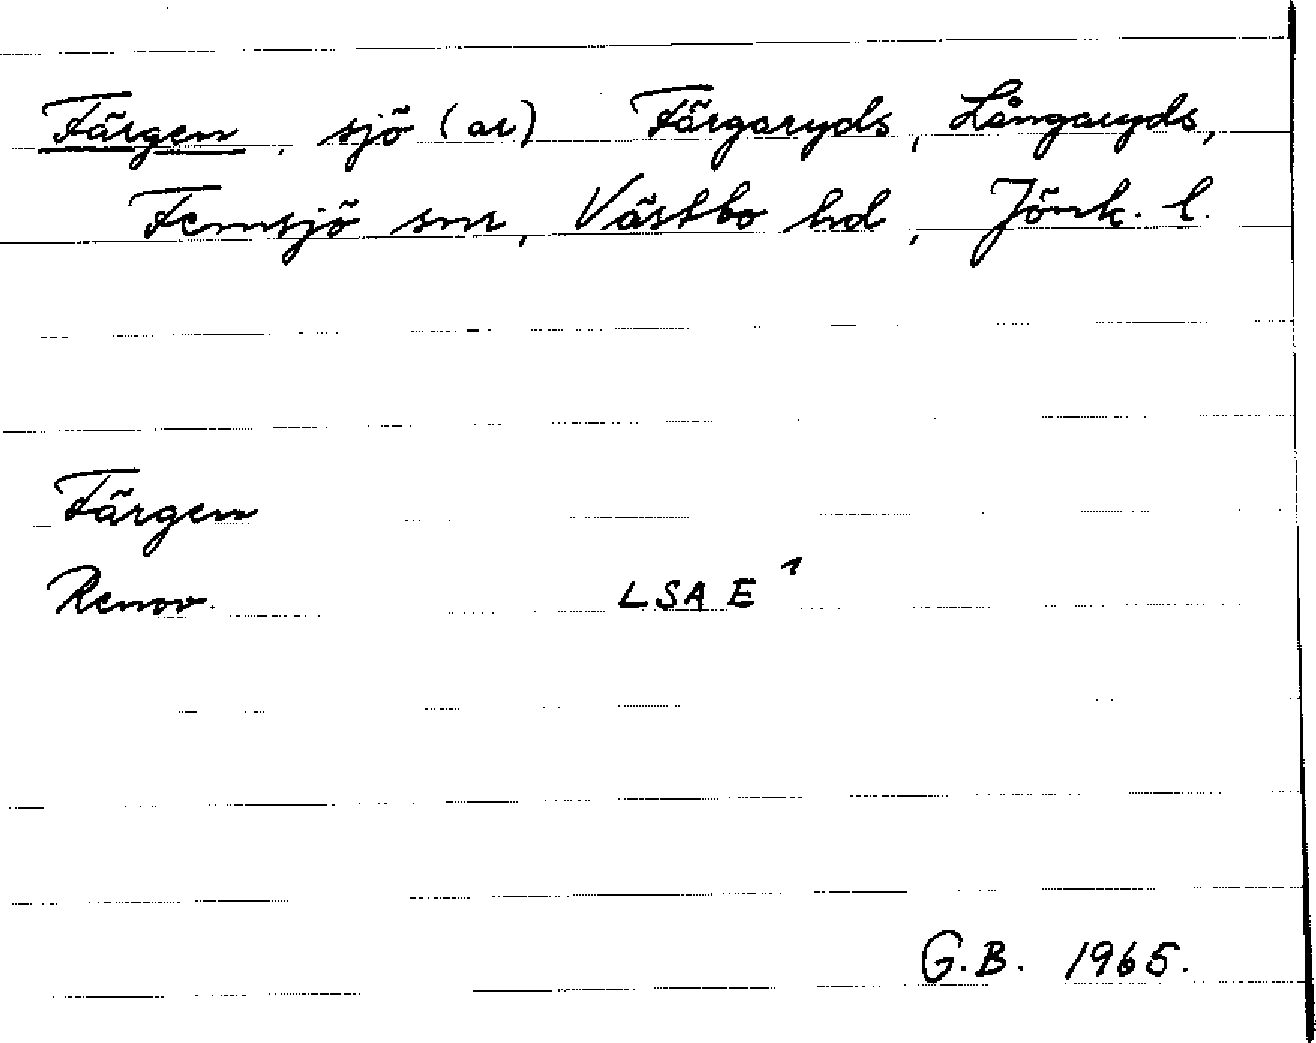 Färgen, sjö (ar) Färgaryds, Långaryds,
Femsjö snr, Västbo hd, Jönk. l.
Färgen
Renov. LSA E 1
G.B. 1965.